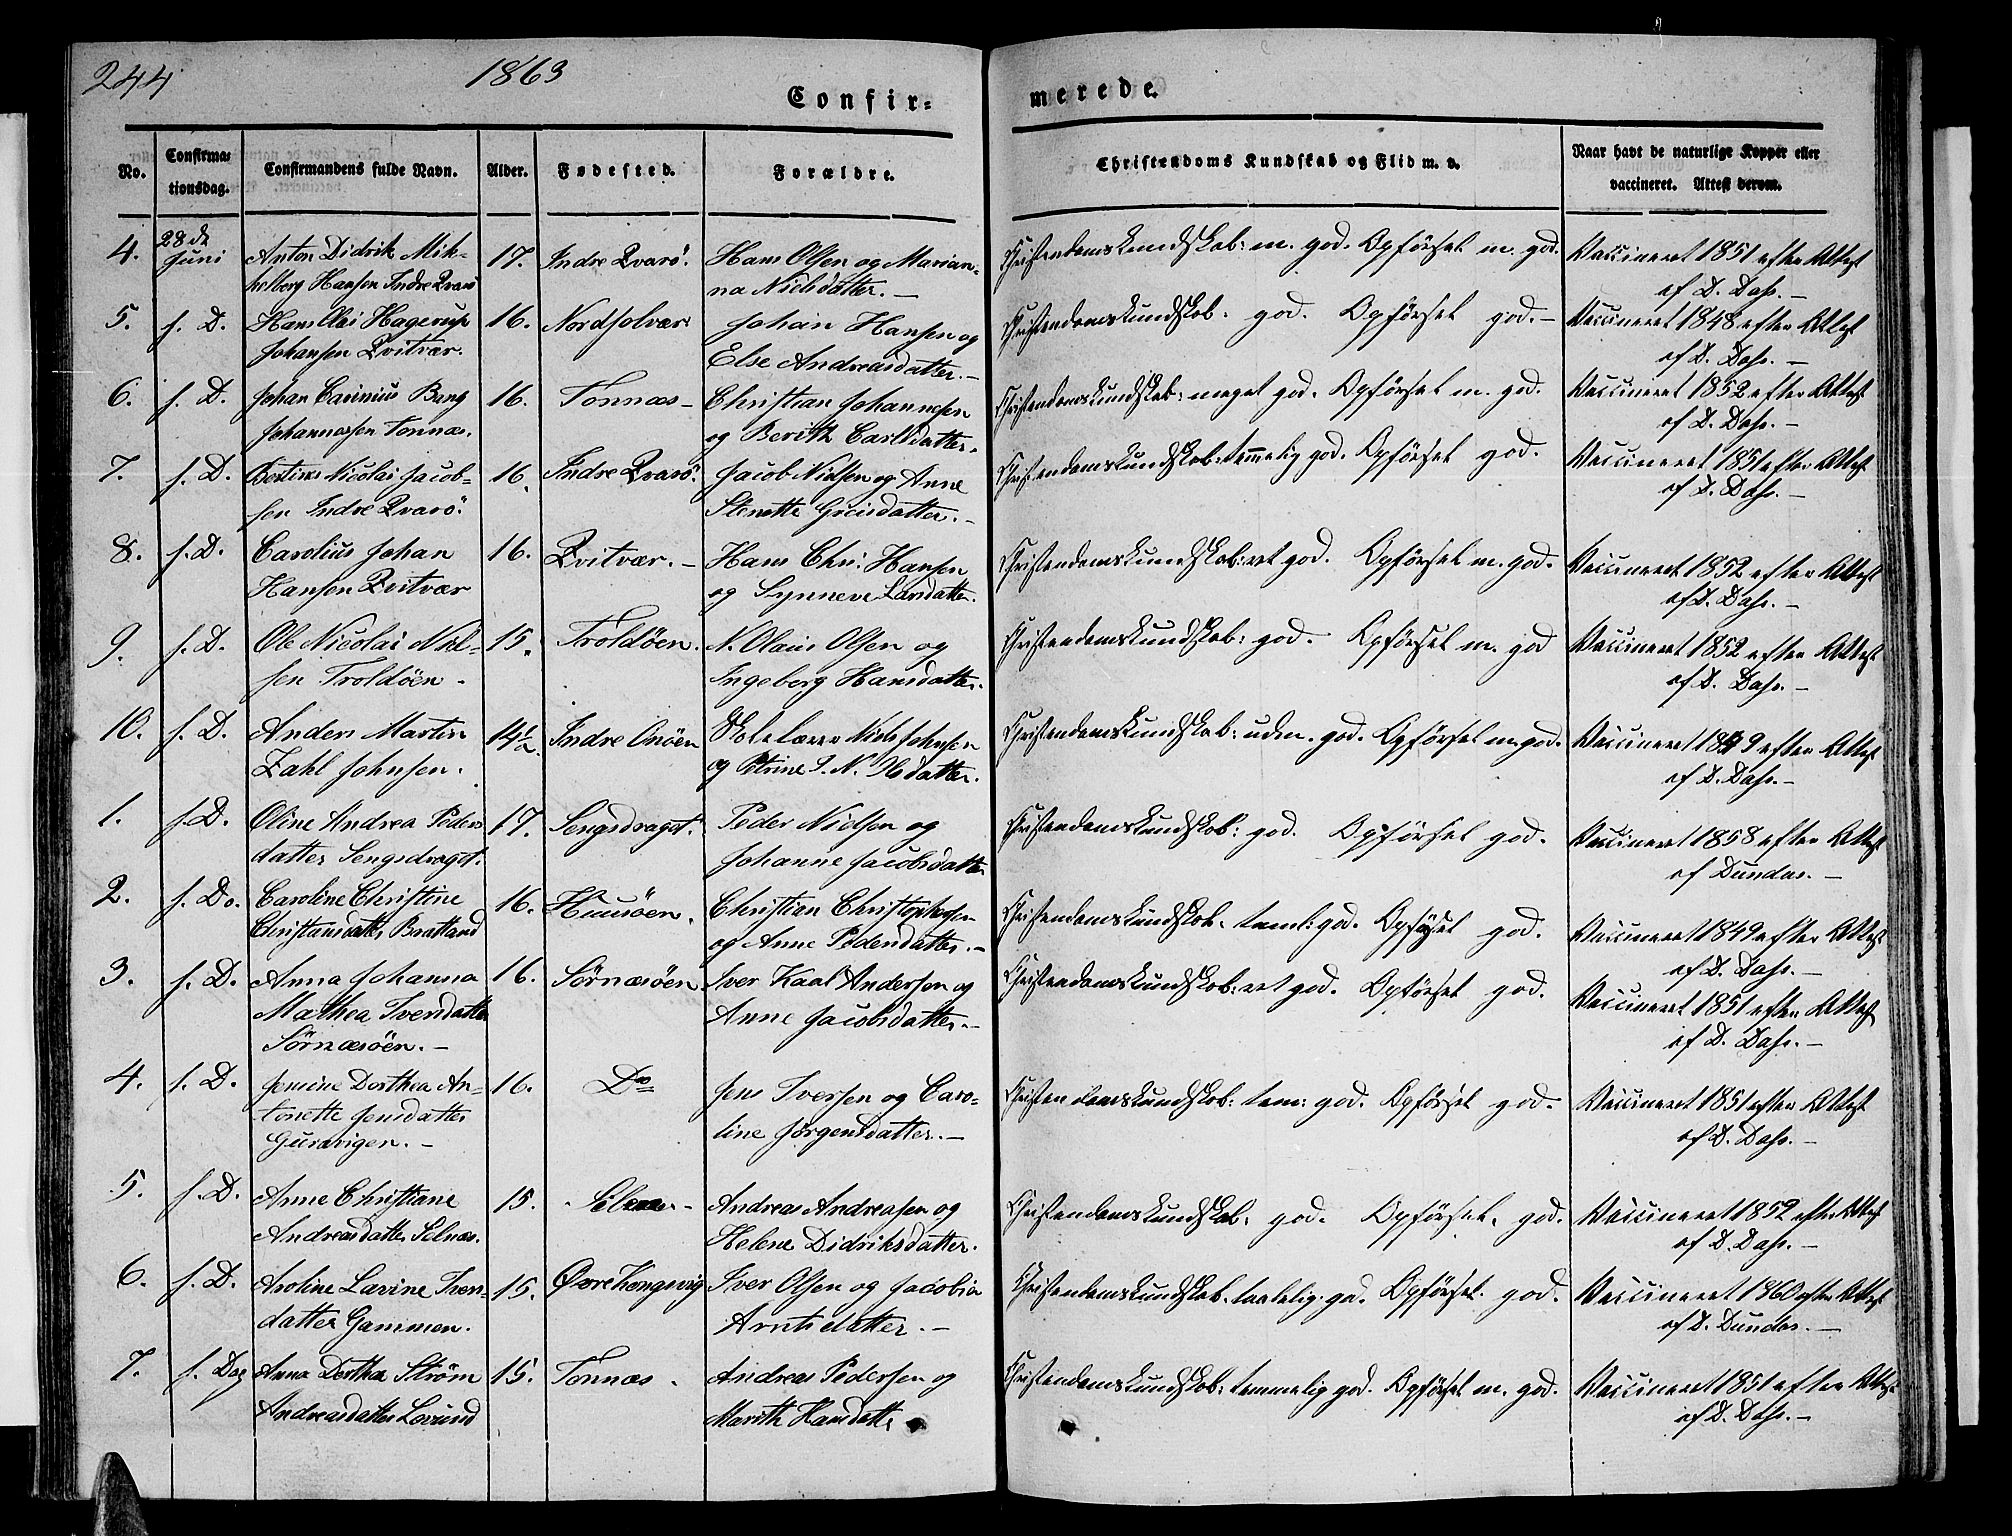 244 1863
Confir= merede.
No. Confirma= tionsdag. Confirmandens fulde Navn. Alder. Fødested. Forældre. Christendoms Kundskab og Flid m. v. Naar havt de naturlige Kopper eller vaccineret. Attest derom.
4. 28de Juni Anton Didrik Mik- 17. Indre Qvarö. Hans Olsen og Marian- Christendomskundskab: m. god. Opförsel m. god. Vaccineret 1851 efter Attest
kelborg Hansen Indre Qvarö na Nielsdatter. — af D. Dass. —
5. s. D. Hans Olai Hagerup 16. Nordsolvær Johan Hansen og Christendomskundskab: god. Opförsel god. — Vaccineret 1848 efter Attest
Johansen Qvitvær. Else Andreasdatter. — af D. Dass. —
6. s. D. Johan Carinius Bang 16. Tonnæs — Christian Johannesen Christendomskundskab: meget god. Opförsel m. god. Vaccineret 1852 efter Attest
Johannessen Tonnæs. og Berith Carlsdatter. af D. Dass. —
7. s. D. Bertinus Nicolai Jacob- 16. Indre Qvarö. Jacob Nielsen og Anne Christendomskundskab: temmelig god. Opförsel god. Vaccineret 1851 efter Attest
sen Indre Qvarö. Stenette Greisdatter. — af D. Dass. —
8. s. D. Carolius Johan 16. Qvitvær. — Hans Chri: Hansen Christendomskundskab: ret god. Opförsel m. god. Vaccineret 1852 efter Attest
Hansen Qvitvær og Synneve Larsdatter. af D. Dass. —
9. s. D. Ole Nicolai Niel- 15. Troldöen. N. Olaus Olsen og Christendomskundskab: god. Opförsel m. god Vaccineret 1852 efter Attest
sen Troldöen. Ingeborg Hansdatter. af D. Dass. —
10. s. D. Anders Martin 14½. Indre Onöen Skolelærer Niels Johnsen Christendomskundskab: udm. god. Opförsel m. god. Vaccineret 1849 efter Attest
Zahl Johnsen. og Petrine S. N. Olsdatter. af D. Dass. —
1. s. D. Oline Andrea Peders 17. Sengsdraget. Peder Nielsen og Christendomskundskab: god. Opförsel god. Vaccineret 1858 efter Attest
datter Sengsdraget. Johanne Jacobsdatter af Dundas. —
2. s. Do. Caroline Christine 16. Huusöen. Christian Christophersen Christendomskundskab: teml: god. Opförsel god. Vaccineret 1849 efter Attest
Christiansdatter Bratland og Anne Pedersdatter. — af D. Dass. —
3. s. D. Anna Johanna 16. Sörnæsöen. Iver Kaal Andersen og Christendomskundskab: ret god. Opförsel god. Vaccineret 1851 efter Attest
Mathea Iversdatter Anne Jacobsdatter. — af D. Dass. —
Sörnæsöen. —
4. s. D. Jemine Dorthea An- 16. Do Jens Iversen og Caro- Christendomskundskab: tem: god. Opförsel god. Vaccineret 1851 efter Attest
tonette Jensdatter line Jörgensdatter. — af D. Dass. —
Gurvigen. —
5. s. D. Anne Christiane 15. Selnæs — Andreas Andreasen og Christendomskundskab: god. Opförsel, god. Vaccineret 1852 efter Attest
Andreasdatter Selnæs. Helene Didriksdatter. af D. Dass. —
6. s. D. Aroline Lavine Iver- 15. Övre Kongsvig Iver Olsen og Jacobia Christendomskundskab: taalelig gd. Opförsel. god. Vaccineret 1860 efter Attest
datter Gammen. Arntsdatter. — af D. Dundas. —
7. s. Dag Anna Dorthea Ström 15. Tonnæs. Andreas Pedersen og Christendomskundskab: temmelig god. Opförsel m. god. Vaccineret 1851 efter Attest
Andreasdatter Lovund Marith Hansdatter af D. Dass. —